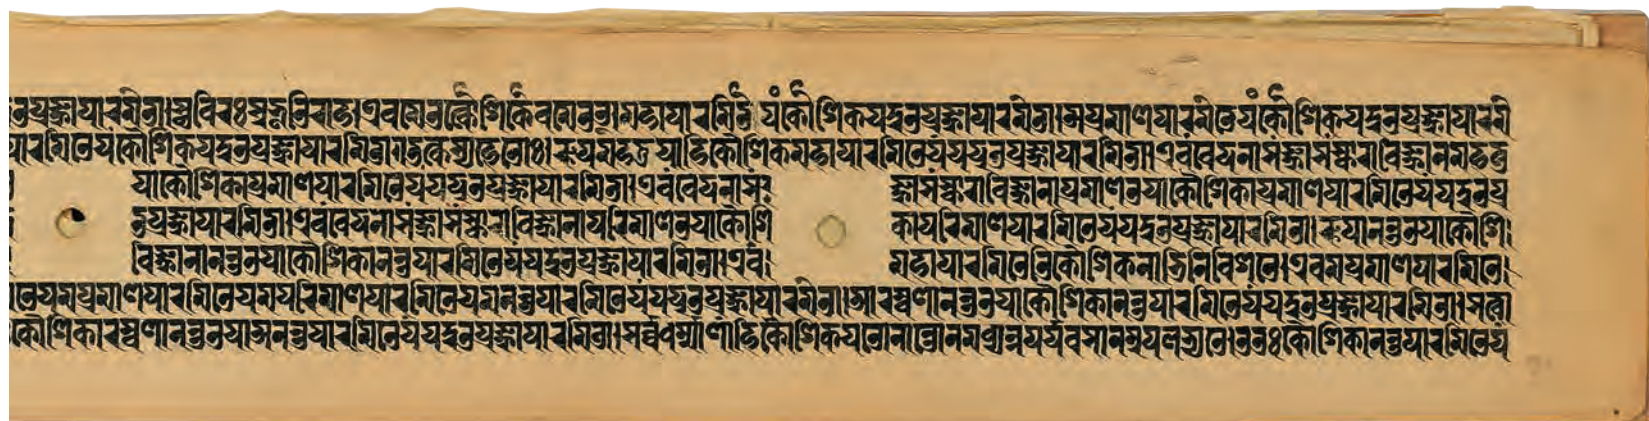 त प्रज्ञापारमिता। स्थविरः सुभूतिराह। एवमेतत्कौशिकैवमेतत्। महापारमितेयं कौशिक यदुत प्रज्ञापारमिता। अप्रमाणपारमितेयं कौशिक यदुत प्रज्ञापारमि
पारमितेयं कौशिक यदुत प्रज्ञापारमिता। तत्कस्य हेतोः। रूपमहत्तया हि कौशिक महापारमितेयं यदुत प्रज्ञापारमिता। एवं वेदनासंज्ञासंस्काराविज्ञानमहत्त
या कौशिकाप्रमाणपारमितेयं यदुत प्रज्ञापारमिता। एवं वेदनासं ज्ञासंस्काराविज्ञानाप्रमाणतया कौशिकाप्रमाणपारमितेयं यदुत प्र
त प्रज्ञापारमिता। एवं वेदनासंज्ञासंस्काराविज्ञानापरिमाणतया कौशि कापरिमाणपारमितेयं यदुत प्रज्ञापारमिता। रूपानन्ततया कौशि
विज्ञानानन्ततया कौशिकानन्तपारमितेयं यदुत प्रज्ञापारमिता। एवं महापारमितेति कौशिक नाभिनिविशते। एवमप्रमाणपारमिते
तेयमप्रमाणपारमितेयमपरिमाणपारमितेयमनन्तपारमितेयं यदुत प्रज्ञापारमिता। आरम्बणानन्ततया कौशिकानन्तपारमितेयं यदुत प्रज्ञापारमिता। सत्वा
कौशिकारम्बणानन्ततया अनन्तपारमितेयं यदुत प्रज्ञापारमिता। सर्व्वधर्म्माणां हि कौशिक यतो नान्तो न मध्यं न पर्यवसानमुपलभ्यते। ततः कौशिकानन्तपारमितेयं